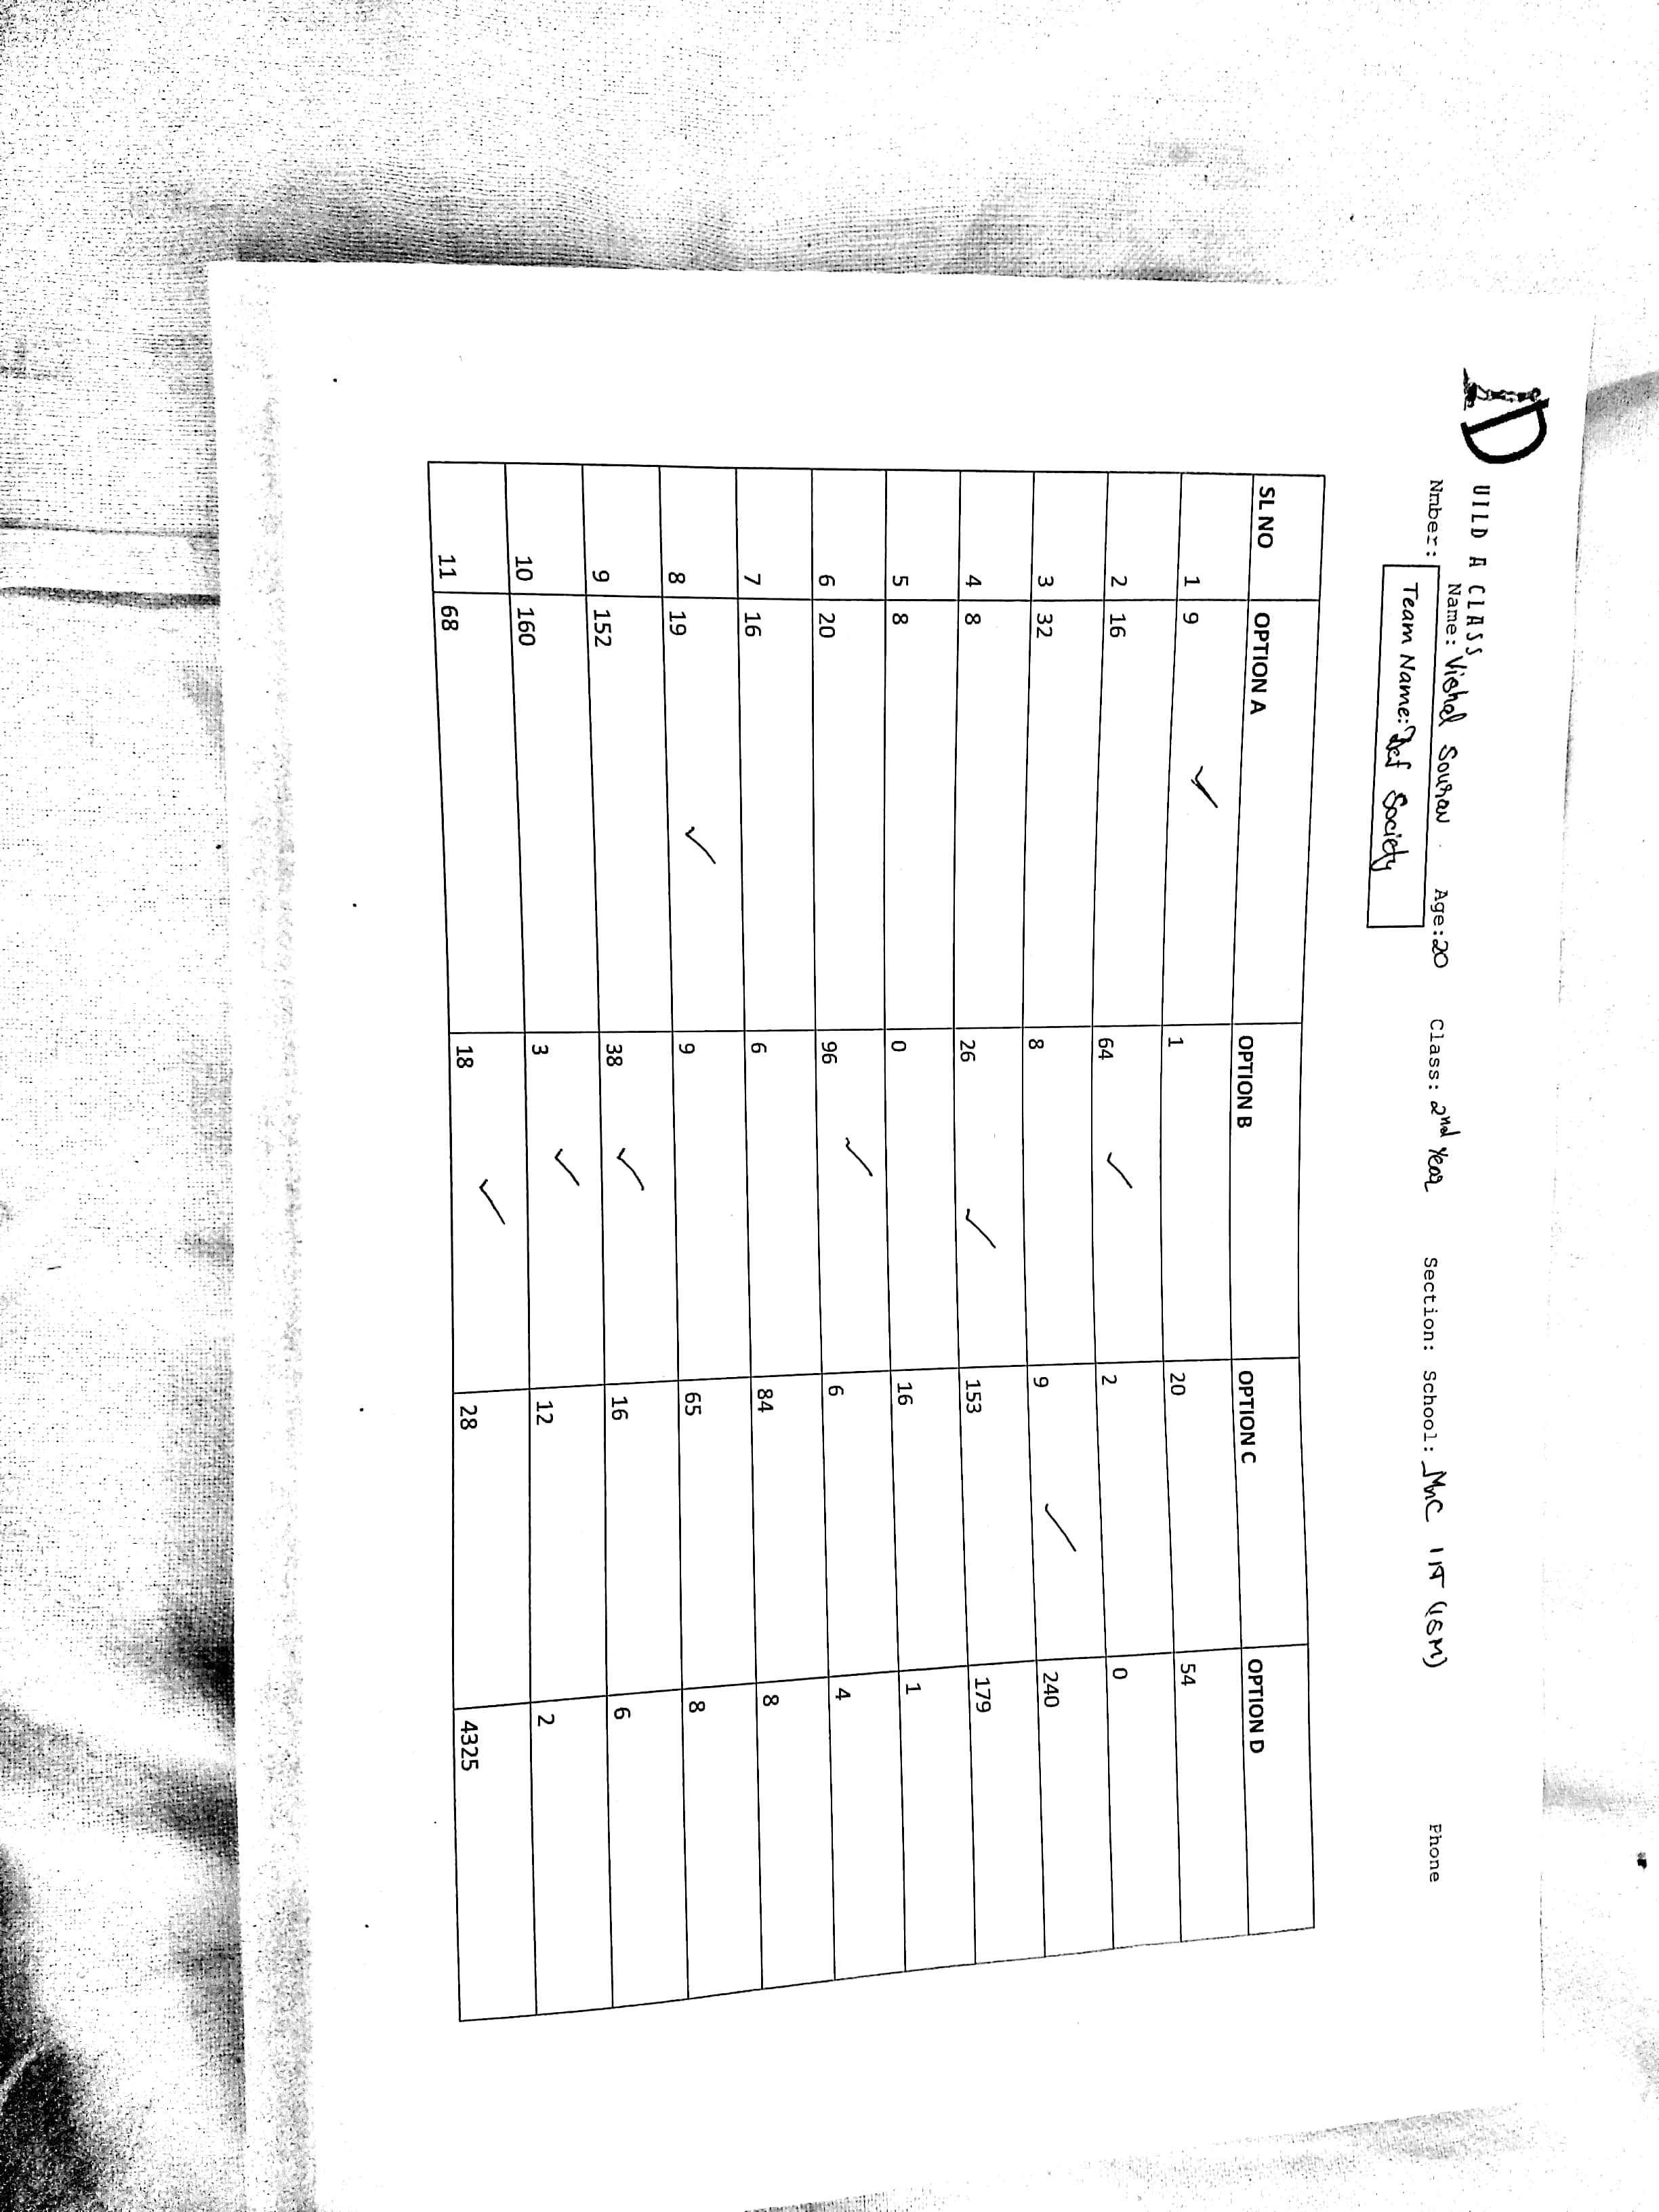 D UILD A CLASS
Name: Vishal Sourav Age:20 Class: 2nd Year Section: School: MnC IIT (ISM) Phone
Nmber:
Team Name: Def Society
SL NO OPTION A OPTION B OPTION C OPTION D
1 9 ✓ 1 20 54
2 16 64 ✓ 2 0
3 32 8 9 ✓ 240
4 8 26 ✓ 153 179
5 8 0 16 1
6 20 96 ✓ 6 4
7 16 6 84 8
8 19 ✓ 9 65 8
9 152 38 ✓ 16 6
10 160 3 ✓ 12 2
11 68 18 ✓ 28 4325